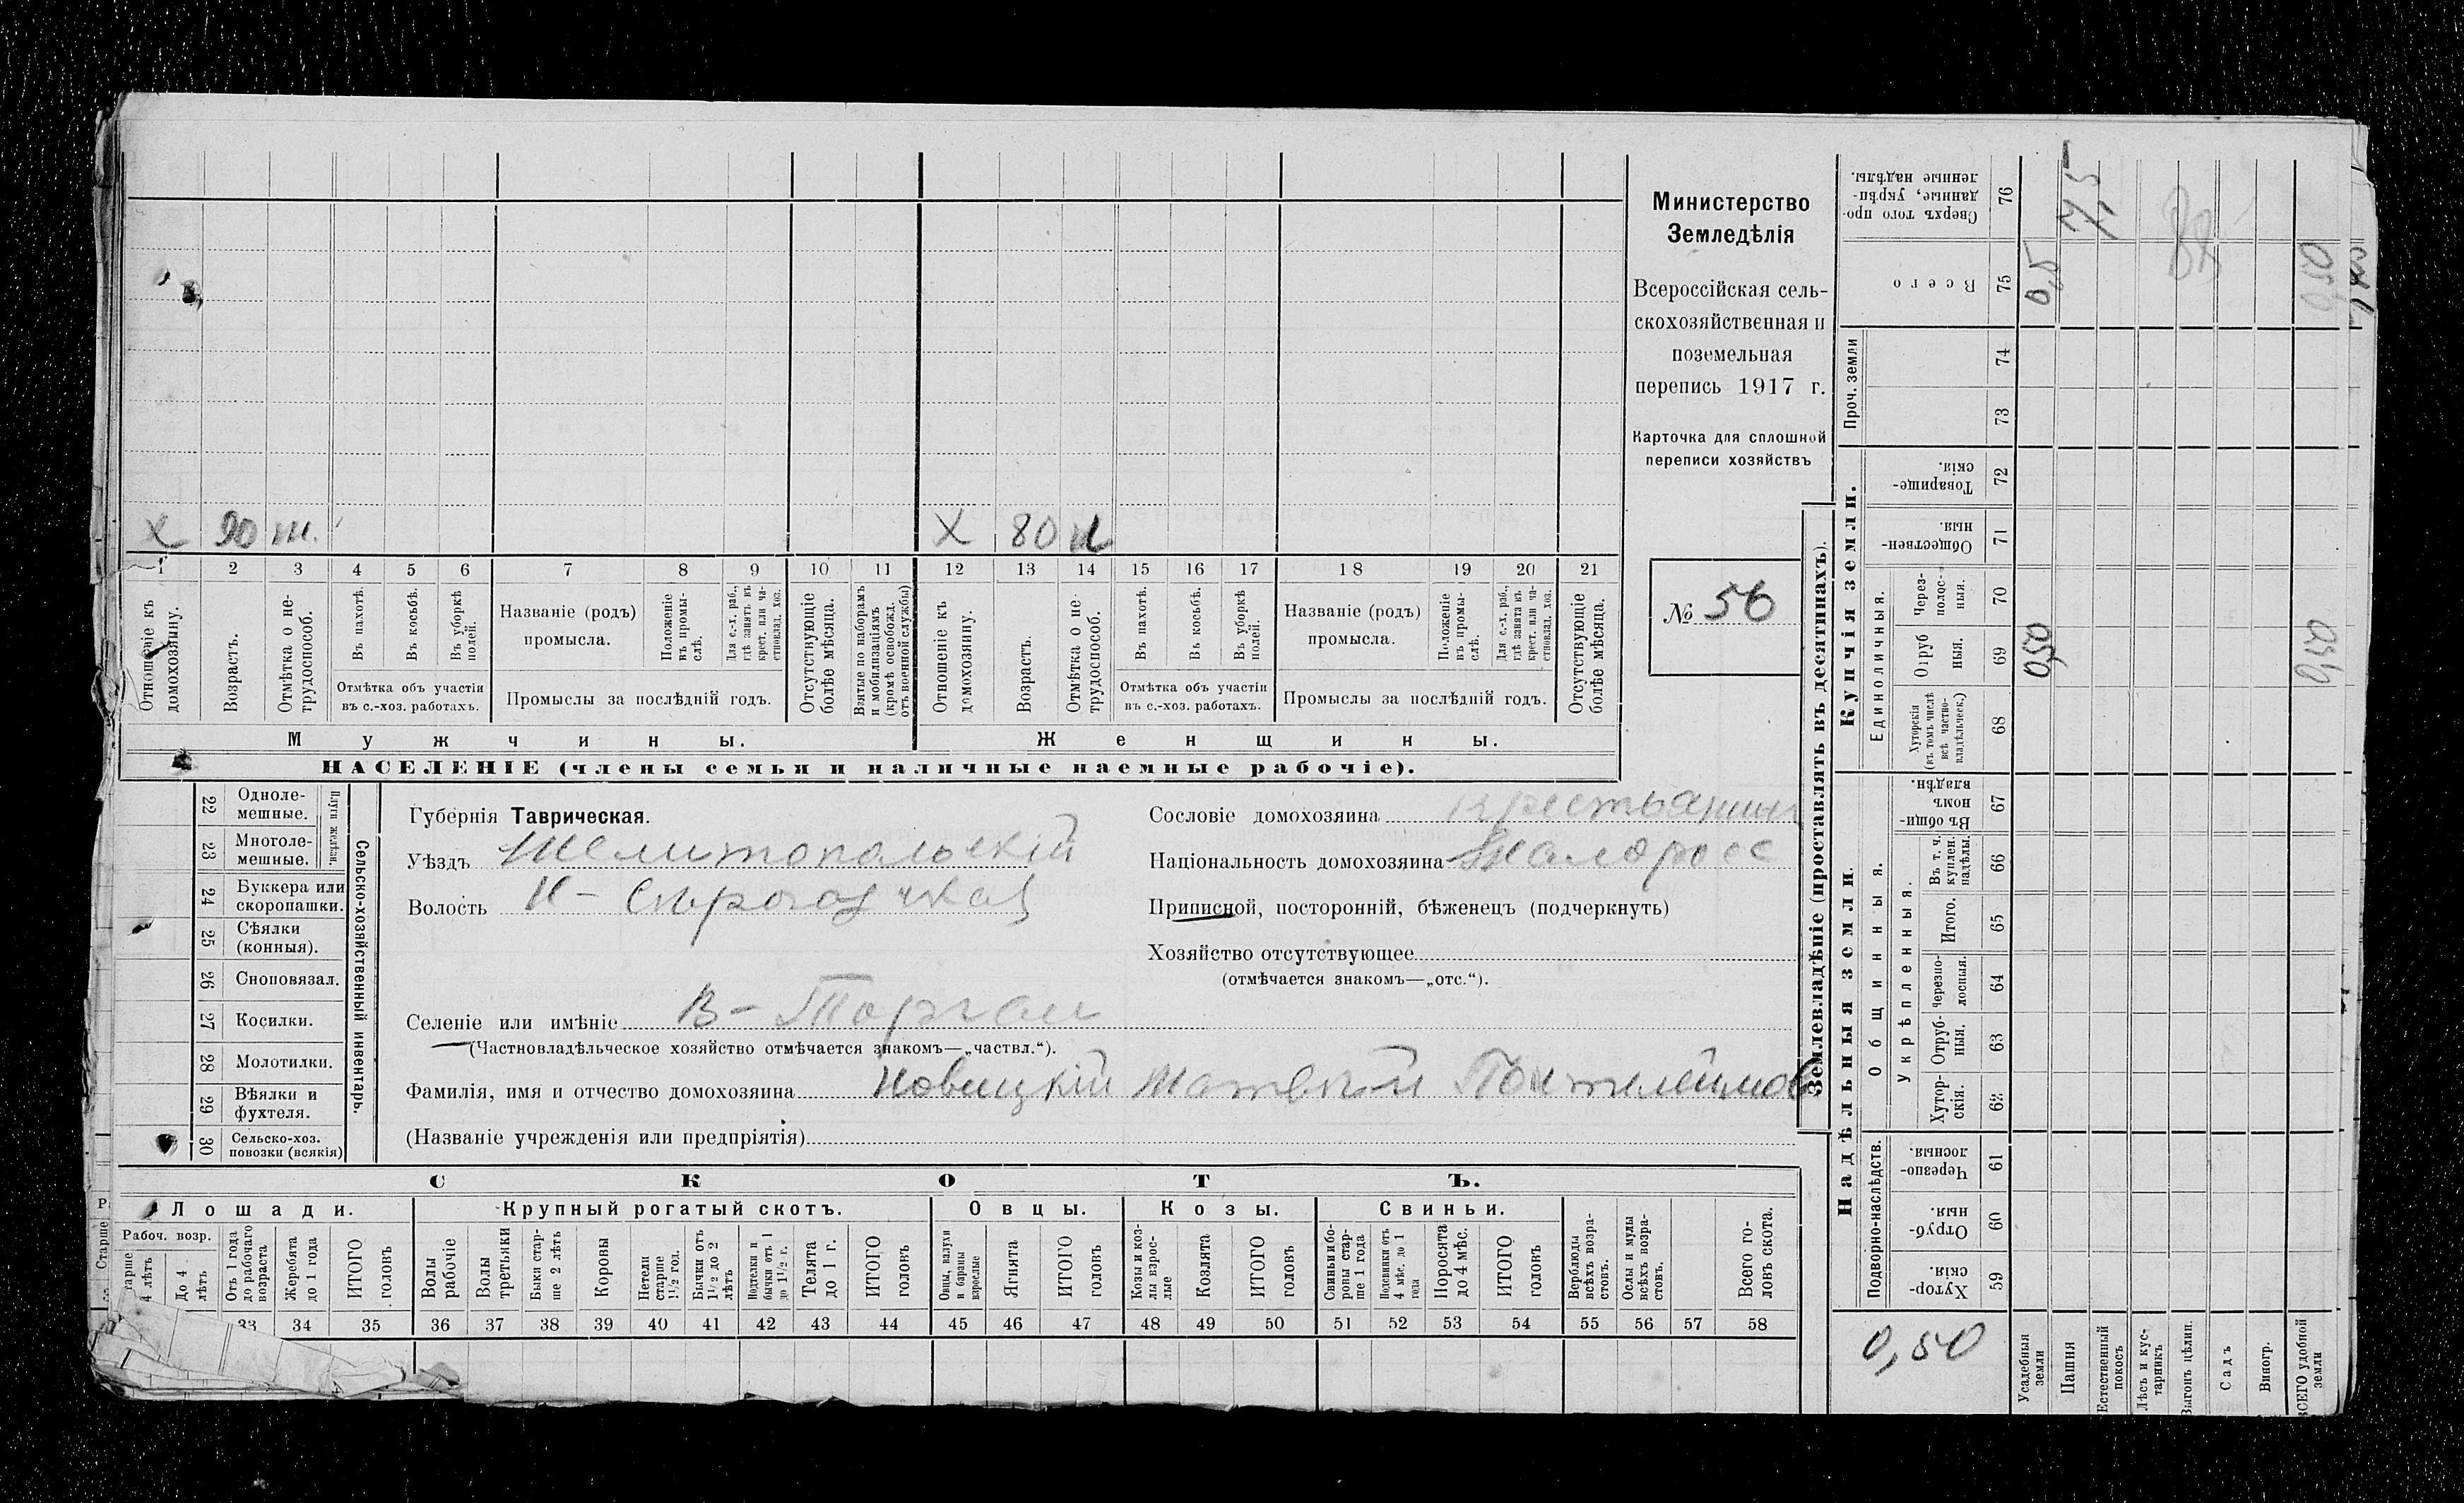 Министерство
Земледѣлія
Всероссійская сель-
скохозяйственная и
поземельная
перепись 1917 г.
Карточка для сплошной
переписи хозяйствъ
№ 56
х 90 х 80
1 2 3 4 5 6 7 8 9 10 11 12 13 14 15 16 17 18 19 20 21
Отношеніе къ
домохозяину.
Возрастъ.
Отмѣтка о не-
трудоспособ.
Въ пахотѣ.
Въ косьбѣ.
Въ уборкѣ
полей.
Отмѣтка объ участіи
въ с.-хоз. работахъ.
Названіе (родъ)
промысла.
Положеніе
въ промы-
слѣ.
Для с.-х. раб.,
гдѣ занятъ въ
крест. или ча-
стновлад. хоз.
Промыслы за послѣдній годъ.
Отсутствующіе
болѣе мѣсяца.
Взятые по наборамъ
и мобилизаціямъ
(кромѣ освобожд.
отъ военной службы)
Отношеніе къ
домохозяину.
Возрастъ.
Отмѣтка о не
трудоспособ.
Въ пахотѣ.
Въ косьбѣ.
Въ уборкѣ
полей.
Отмѣтка объ участіи
въ с.-хоз. работахъ.
Названіе (родъ)
промысла.
Положеніе
въ промы-
слѣ.
Для с.-х. раб.,
гдѣ занята въ
крест. или ча-
стновлад. хоз.
Промыслы за послѣдній годъ.
Отсутствующіе
болѣе мѣсяца.
Мужчины. Женщины.
НАСЕЛЕНІЕ (члены семьи и наличные наемные рабочіе).
Сельско-хозяйственный инвентарь.
Плуги желѣзн.
22 Одноле-
мешные.
23 Многоле-
мешные.
24 Буккера или
скоропашки.
25 Сѣялки
(конныя).
26 Сноповязал.
27 Косилки.
28 Молотилки.
29 Вѣялки и
фухтеля.
30 Сельско-хоз.
повозки (всякія)
Губернія Таврическая.
Уѣздъ Мелитопольскій
Волость Н-Сѣрогозская
Селеніе или имѣніе В-Торгаи
(Частновладѣльческое хозяйство отмѣчается знакомъ—„частвл.“).
Фамилія, имя и отчество домохозяина Новицкій Матвѣй Пантелеимов
(Названіе учрежденія или предпріятія)
Сословіе домохозяина крестьянин
Національность домохозяина Малоросс
Приписной, посторонній, бѣженецъ (подчеркнуть)
Хозяйство отсутствующее
(отмѣчается знакомъ—„отс.“).
СКОТЪ.
Лошади. Крупный рогатый скотъ. Овцы. Козы. Свиньи.
Рабоч. возр.
Старше
4 лѣтъ
До 4
лѣтъ
Отъ 1 года
до рабочаго
возраста
Жеребята
до 1 года
ИТОГО
головъ
Волы
рабочіе
Волы
третьяки
Быки стар-
ше 2 лѣтъ
Коровы
Нетели
старше
1½ год.
Бычки отъ
1½ до 2
лѣтъ
Подтелки и
бычки отъ 1
до 1½ г.
Телята
до 1 г.
ИТОГО
головъ
Овцы, валухи
и бараны
взрослые
Ягнята
ИТОГО
головъ
Козы и коз-
лы взрос-
лые
Козлята
ИТОГО
головъ
Свиньи и бо-
ровы стар-
ше 1 года
Подсвинки отъ
4 мѣс. до 1
года
Поросята
до 4 мѣс.
ИТОГО
головъ
Верблюды
всѣхъ возра-
стовъ.
Ослы и мулы
всѣхъ возра-
стовъ.
Всего го-
ловъ скота.
33 34 35 36 37 38 39 40 41 42 43 44 45 46 47 48 49 50 51 52 53 54 55 56 57 58
Землевладѣніе (проставлять въ десятинахъ).
Сверхъ того про-
данные, укрѣп-
ленные надѣлы.
76 7,5
Всего
75 0,5 0,50
Проч. земли
74
73
Купчія земли.
Товарище-
скія.
72
Обществен-
ныя.
71
Единоличныя.
Через-
полос-
ныя.
70
Отруб
ныя.
69 0,50 0,50
Хуторскія
(въ томъ числѣ
всѣ частно-
владѣльческ.)
68
Надѣльныя земли.
Общинныя.
Въ общи-
номъ
владѣн.
67
Въ т. ч.
куплен.
надѣлы.
66
Укрѣпленныя.
Итого.
65
Черезпо-
лосныя.
64
Отруб-
ныя.
63
Хутор-
скія.
62
Подворно-наслѣдств.
Черезпо-
лосныя.
61
Отруб-
ныя.
60
Хутор-
скія.
59
0,50
Усадебныя
земли
Пашня
Естественный
покосъ
Лѣсъ и кус-
тарникъ
Выгонъ цѣлин.
Садъ
Виногр.
ВСЕГО удобной
земли